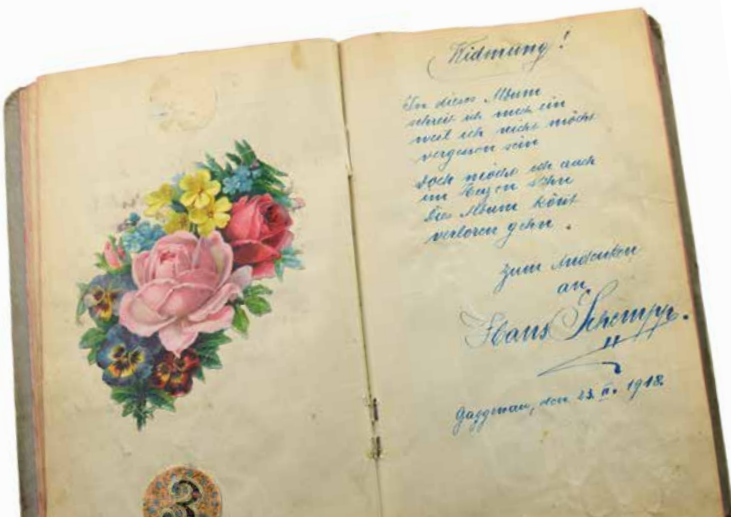 3
Widmung!
In dieses Album
schreib ich mich ein
weil ich nicht möcht
vergessen sein
Doch möcht ich auch
im Herzen stehn
Dies Album könnt
verloren gehn.
Zum Andenken
an
Hans Schempp.
Gaggenau, den 23. II. 1918.